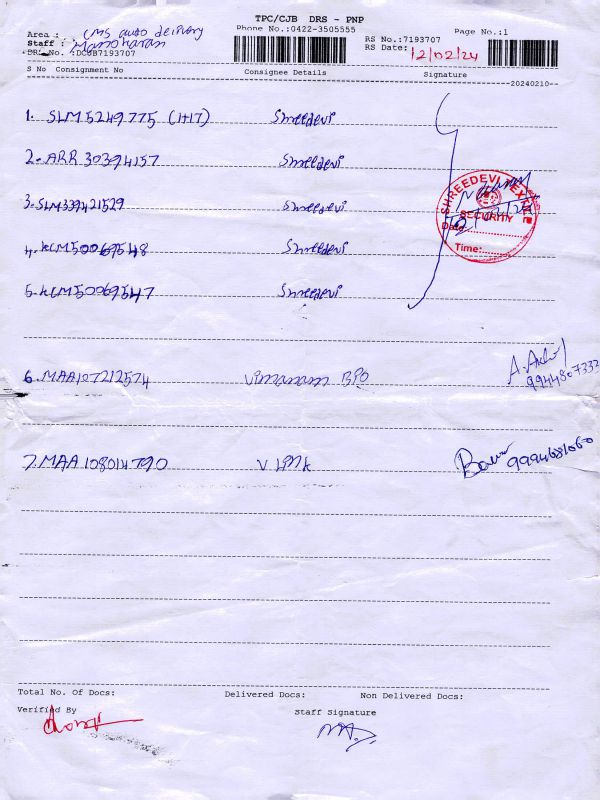 TPC/CJB DRS - PNP
Area : CMS auto delivery
Phone No.:0422-3505555
Page No.:1
Staff : Manoharan
RS No.:7193707
DRS No. :DCJB7193707
RS Date: 12/02/24
S No Consignment No Consignee Details Signature
20240210
1. SLM5249775 (1+17) Shreedevi
2. ARR 30394157 Shreedevi
3. SLM339421529 Shreedevi
SHREEDEVI TEXTILE
SECURITY
Date
Time:
4. KCM50069548 Shreedevi
5. KCM50069547 Shreedevi
6. MAA107212574 Vimanam BPO
9944807332
7. MAA108014790 V link
9994681060
Total No. Of Docs: Delivered Docs: Non Delivered Docs:
Verified By Staff Signature